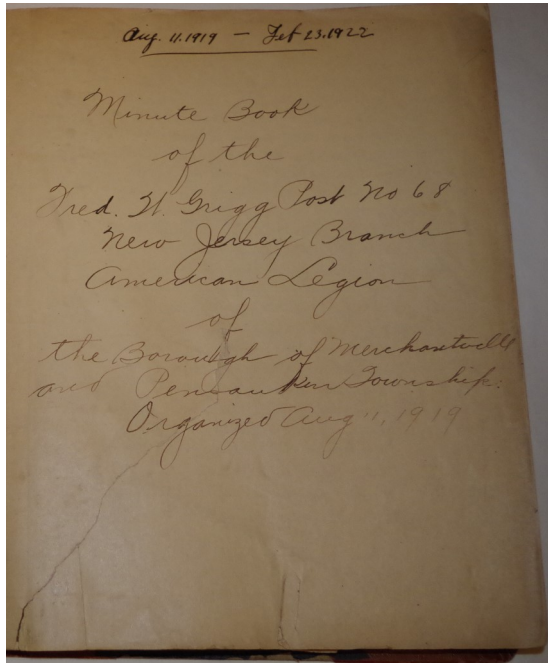 Aug. 11. 1919 — Feb 23. 1922
Minute Book
of the
Fred. W. Grigg Post No 68
New Jersey Branch
American Legion
of
the Borough of Merchantville
and Pensauken Township.
Organized Aug 11, 1919